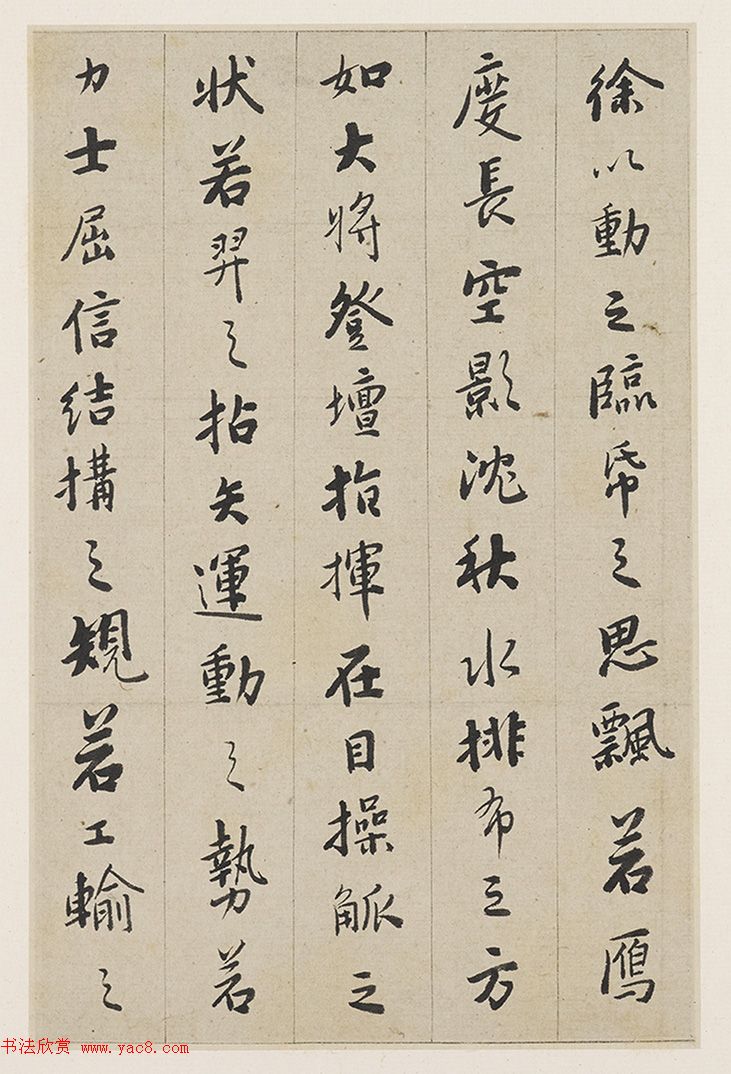 徐以動之臨帋之思飄若鴈
度長空影沈秋水排布之方
如大將登壇指揮在目操觚之
狀若羿之拈矢運動之勢若
力士屈信結搆之規若工輸之
书法欣赏 www.yac8.com